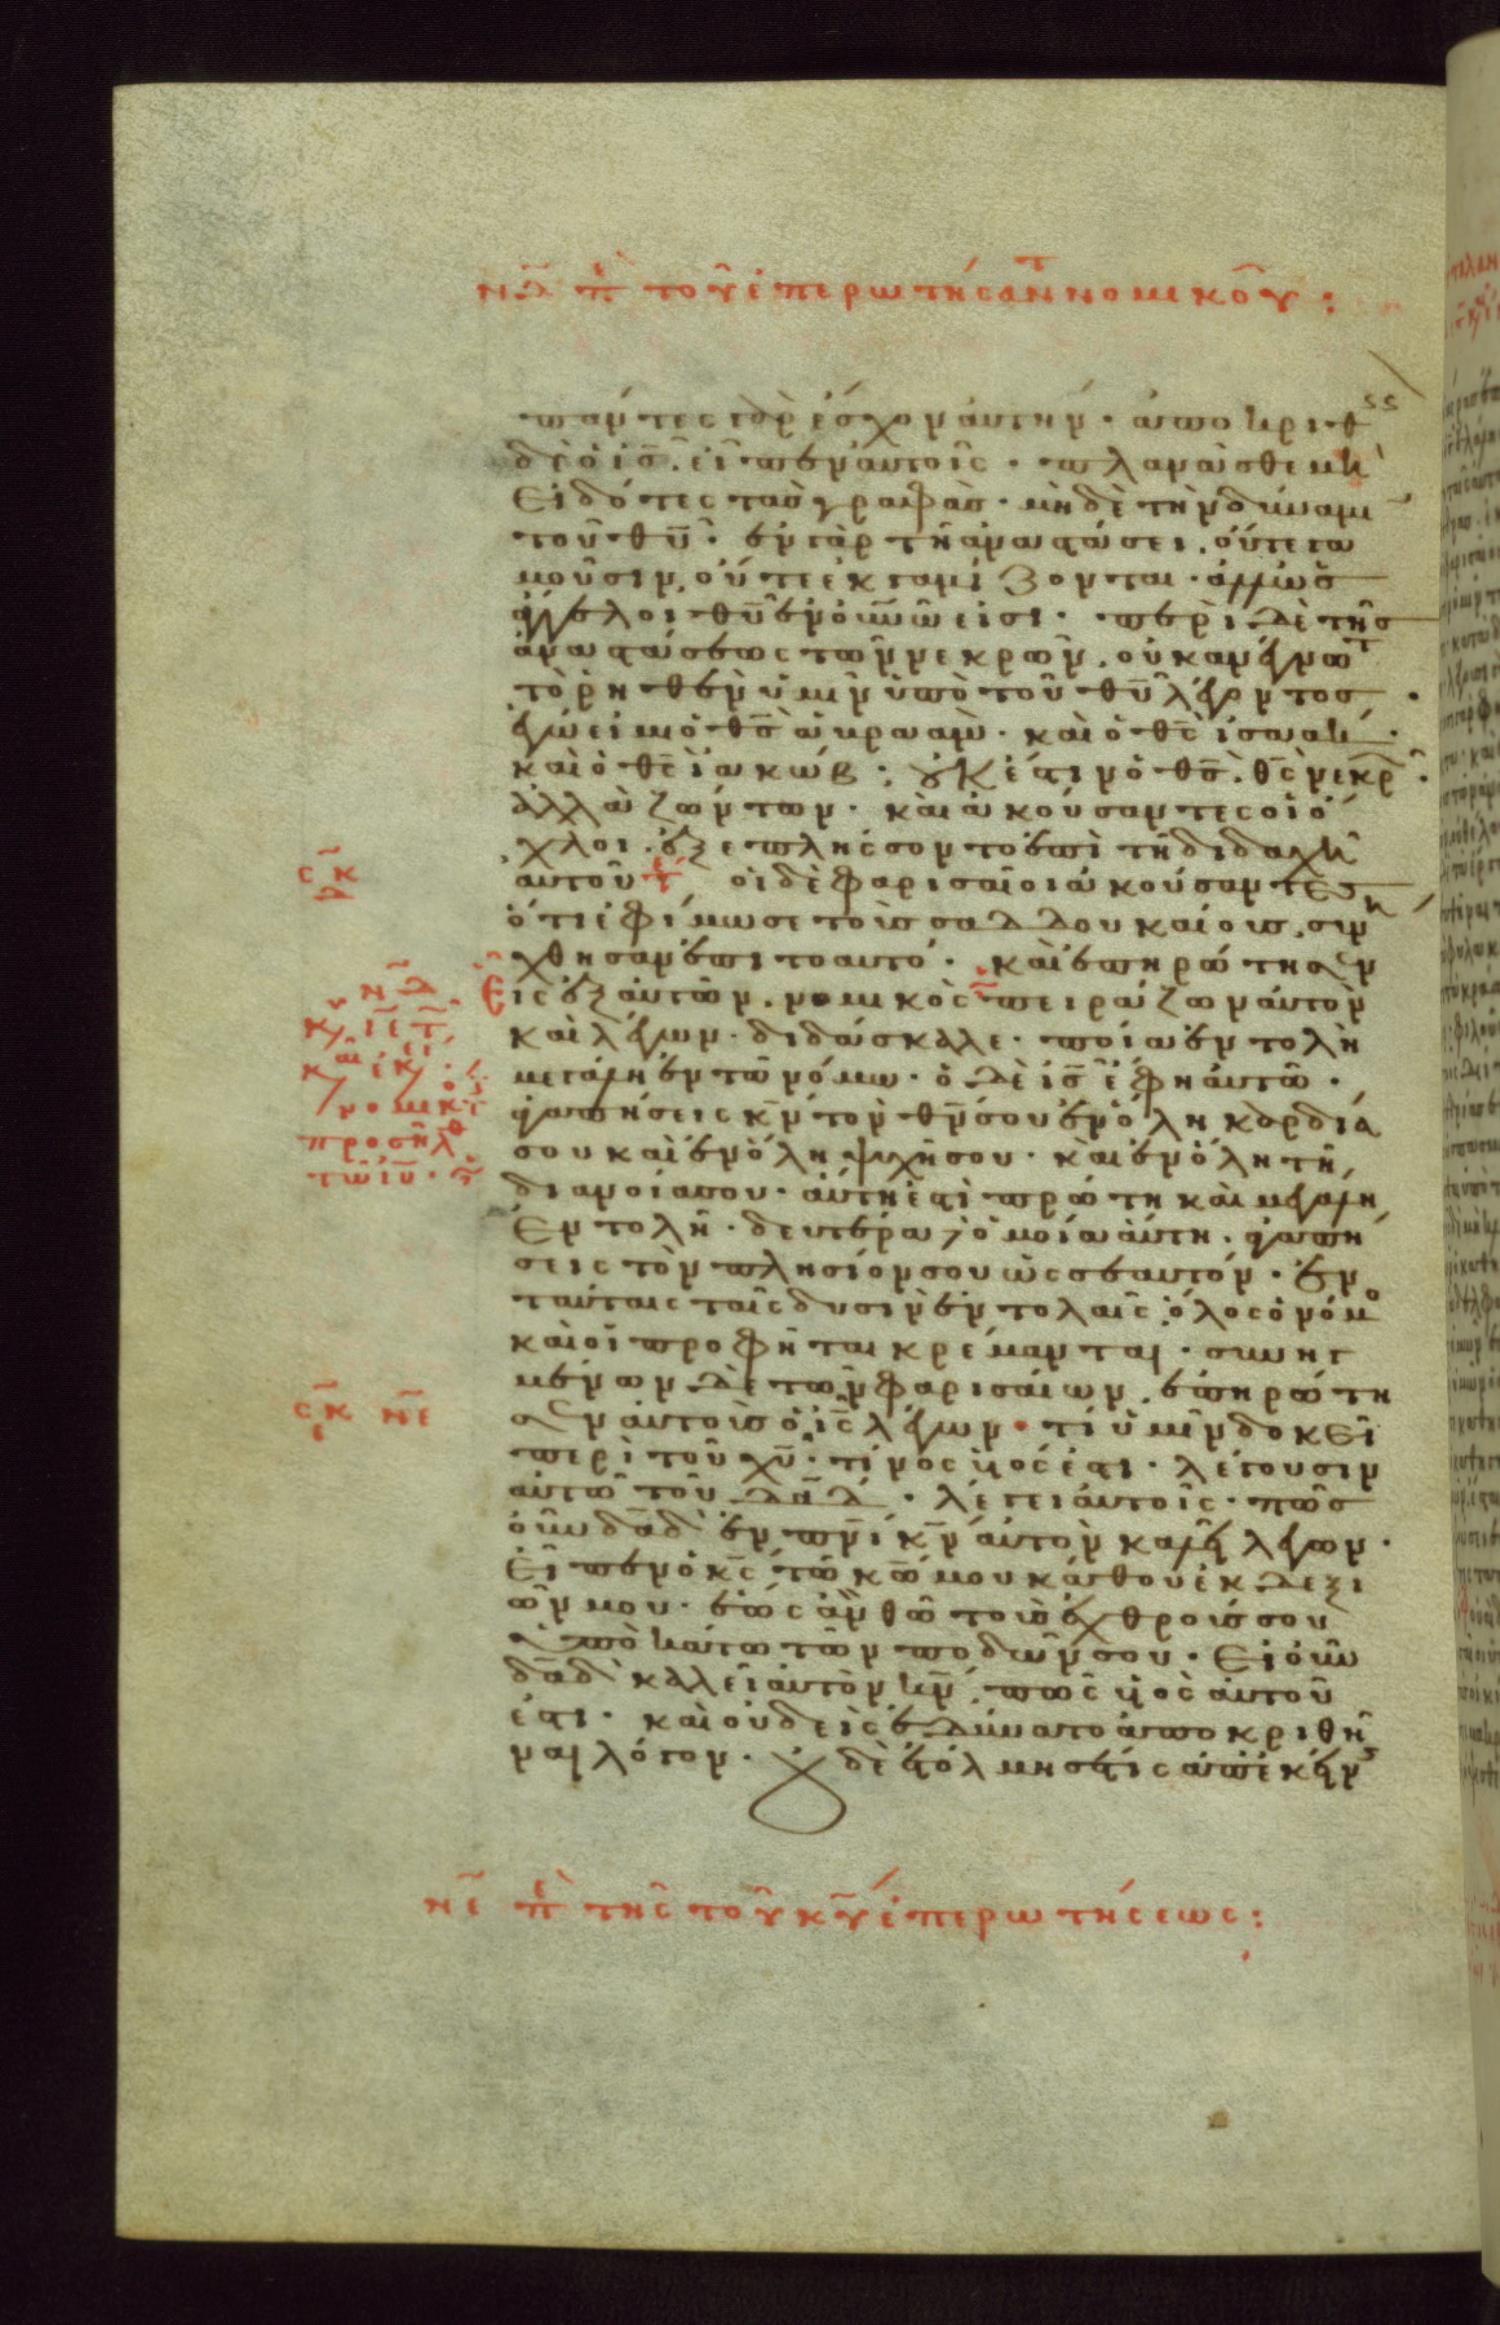 νδ πε του επερωτήσαντ νομικοῦ:
πάντες γὰρ ἔσχον ἀυτήν · ἀποκριθ
δὲ ὁ ις̅ εἶπεν ἀυτοῖς · πλανᾶσθε μὴ
Ειδότες τὰσ γραφὰσ · μηδὲ τὴν δύναμι
τοῦ θυ̅ · ἐν γὰρ τῆ ἀναστάσει, ὄυτε γα
μοῦσιν, ὄυτε ἐκγαμίζονται · ἀλλ ὡσ
ἄγγελοι θυ̅ ἐν ὀυνῶ εἰσι · περὶ δὲ τῆσ
ἀναστάσεως τῶν νεκρῶν, οὐκ ἀνέγνωτ
τὸ ῥηθὲν ὑμῖν ὑπὸ τοῦ θυ̅ λέγοντοσ ·
ἐγώ εἰμι ὁ θσ̅ ἀβρααμ · καὶ ὁ θς̅ ἰσαακ ·
καὶ ὁ θς̅ ἰακώβ · οὐκ ἔστιν ὁ θσ̅ θς̅ νεκρ ·
ἀλλὰ ζώντων · καὶ ἀκούσαντες οἱ ὄ
χλοι ἐξεπλήσσοντο ἐπὶ τῆ διδαχῆ
αυτοῦ τε οἱ δὲ φαρισαῖοι ἀκούσαντες
ὅτι ἐφίμωσε τοὺσ σαδδουκαίουσ, συνή
χθησαν ἐπι το αυτό · καὶ ἐπηρώτησεν
Εἱς ἐξ ἀυτῶν, νομικὸς πειράζων ἀυτὸν
καὶ λέγων · διδάσκαλε · ποία ἐντολὴ
μεγάλη ἐν τῶ νόμω · ὁ δὲ ις̅ ἔφη ἀυτῶ ·
ἀγαπήσεις κν̅ τὸν θν̅ σου ἐν ὅλη καρδία
σου καὶ ἐν ὅλη ψυχῆ σου · καὶ ἐν ὅλη τῆ
διανοία σου · ἀύτη ἐστὶ πρώτη καὶ μεγάλη
Εντολὴ · δευτέρα δ ὁμοία ἀύτη · ἀγαπή
σεις τὸν πλησίον σου ὡς σεαυτόν · ἐν
ταύταις ταῖς δυσὶν ἐντολαῖς ὅλος ὁ νόμο
καὶ οἱ προφῆται κρέμανται · συνηγ
μένων δὲ τῶν φαρισαίων, ἐπηρώτη
σεν ἀυτοὺσ ὁ ις̅ λέγων · τί ὑμῖν δοκεῖ
περὶ τοῦ χυ̅ · τίνος υἱός ἐστι · λέγουσιν
αὐτῶ τοῦ δαδ · λέγει ἀυτοῖς · πῶσ
οὖν δαδ ἐν πνι κν̅ ἀυτὸν καλεῖ λέγων ·
Εἶπεν ὁ κς̅ τῶ κω̅ μου κάθου ἐκ δεξι
ῶν μου · ἕως ἂν θῶ τοὺσ ἐχθρούσ σου
ὑποκάτω τῶν ποδῶν σου · Εἰ οὖν
δαδ καλεῖ ἀυτὸν κν̅, πῶς υἱὸς ἀυτοῦ
ἐστι · καὶ οὐδεὶς ἐδύνατο ἀποκριθῆ
ναι λόγον · οὐδὲ ἐτόλμησέ τις ἀπ ἐκείν
νε πε της τοῦ κυ̅ ἐπερωτήσεως:
σκ
δ
νδ
κυ ιε τ
νομικ
προσηλθ
τῶ ιυ ·
σκ νε
ε